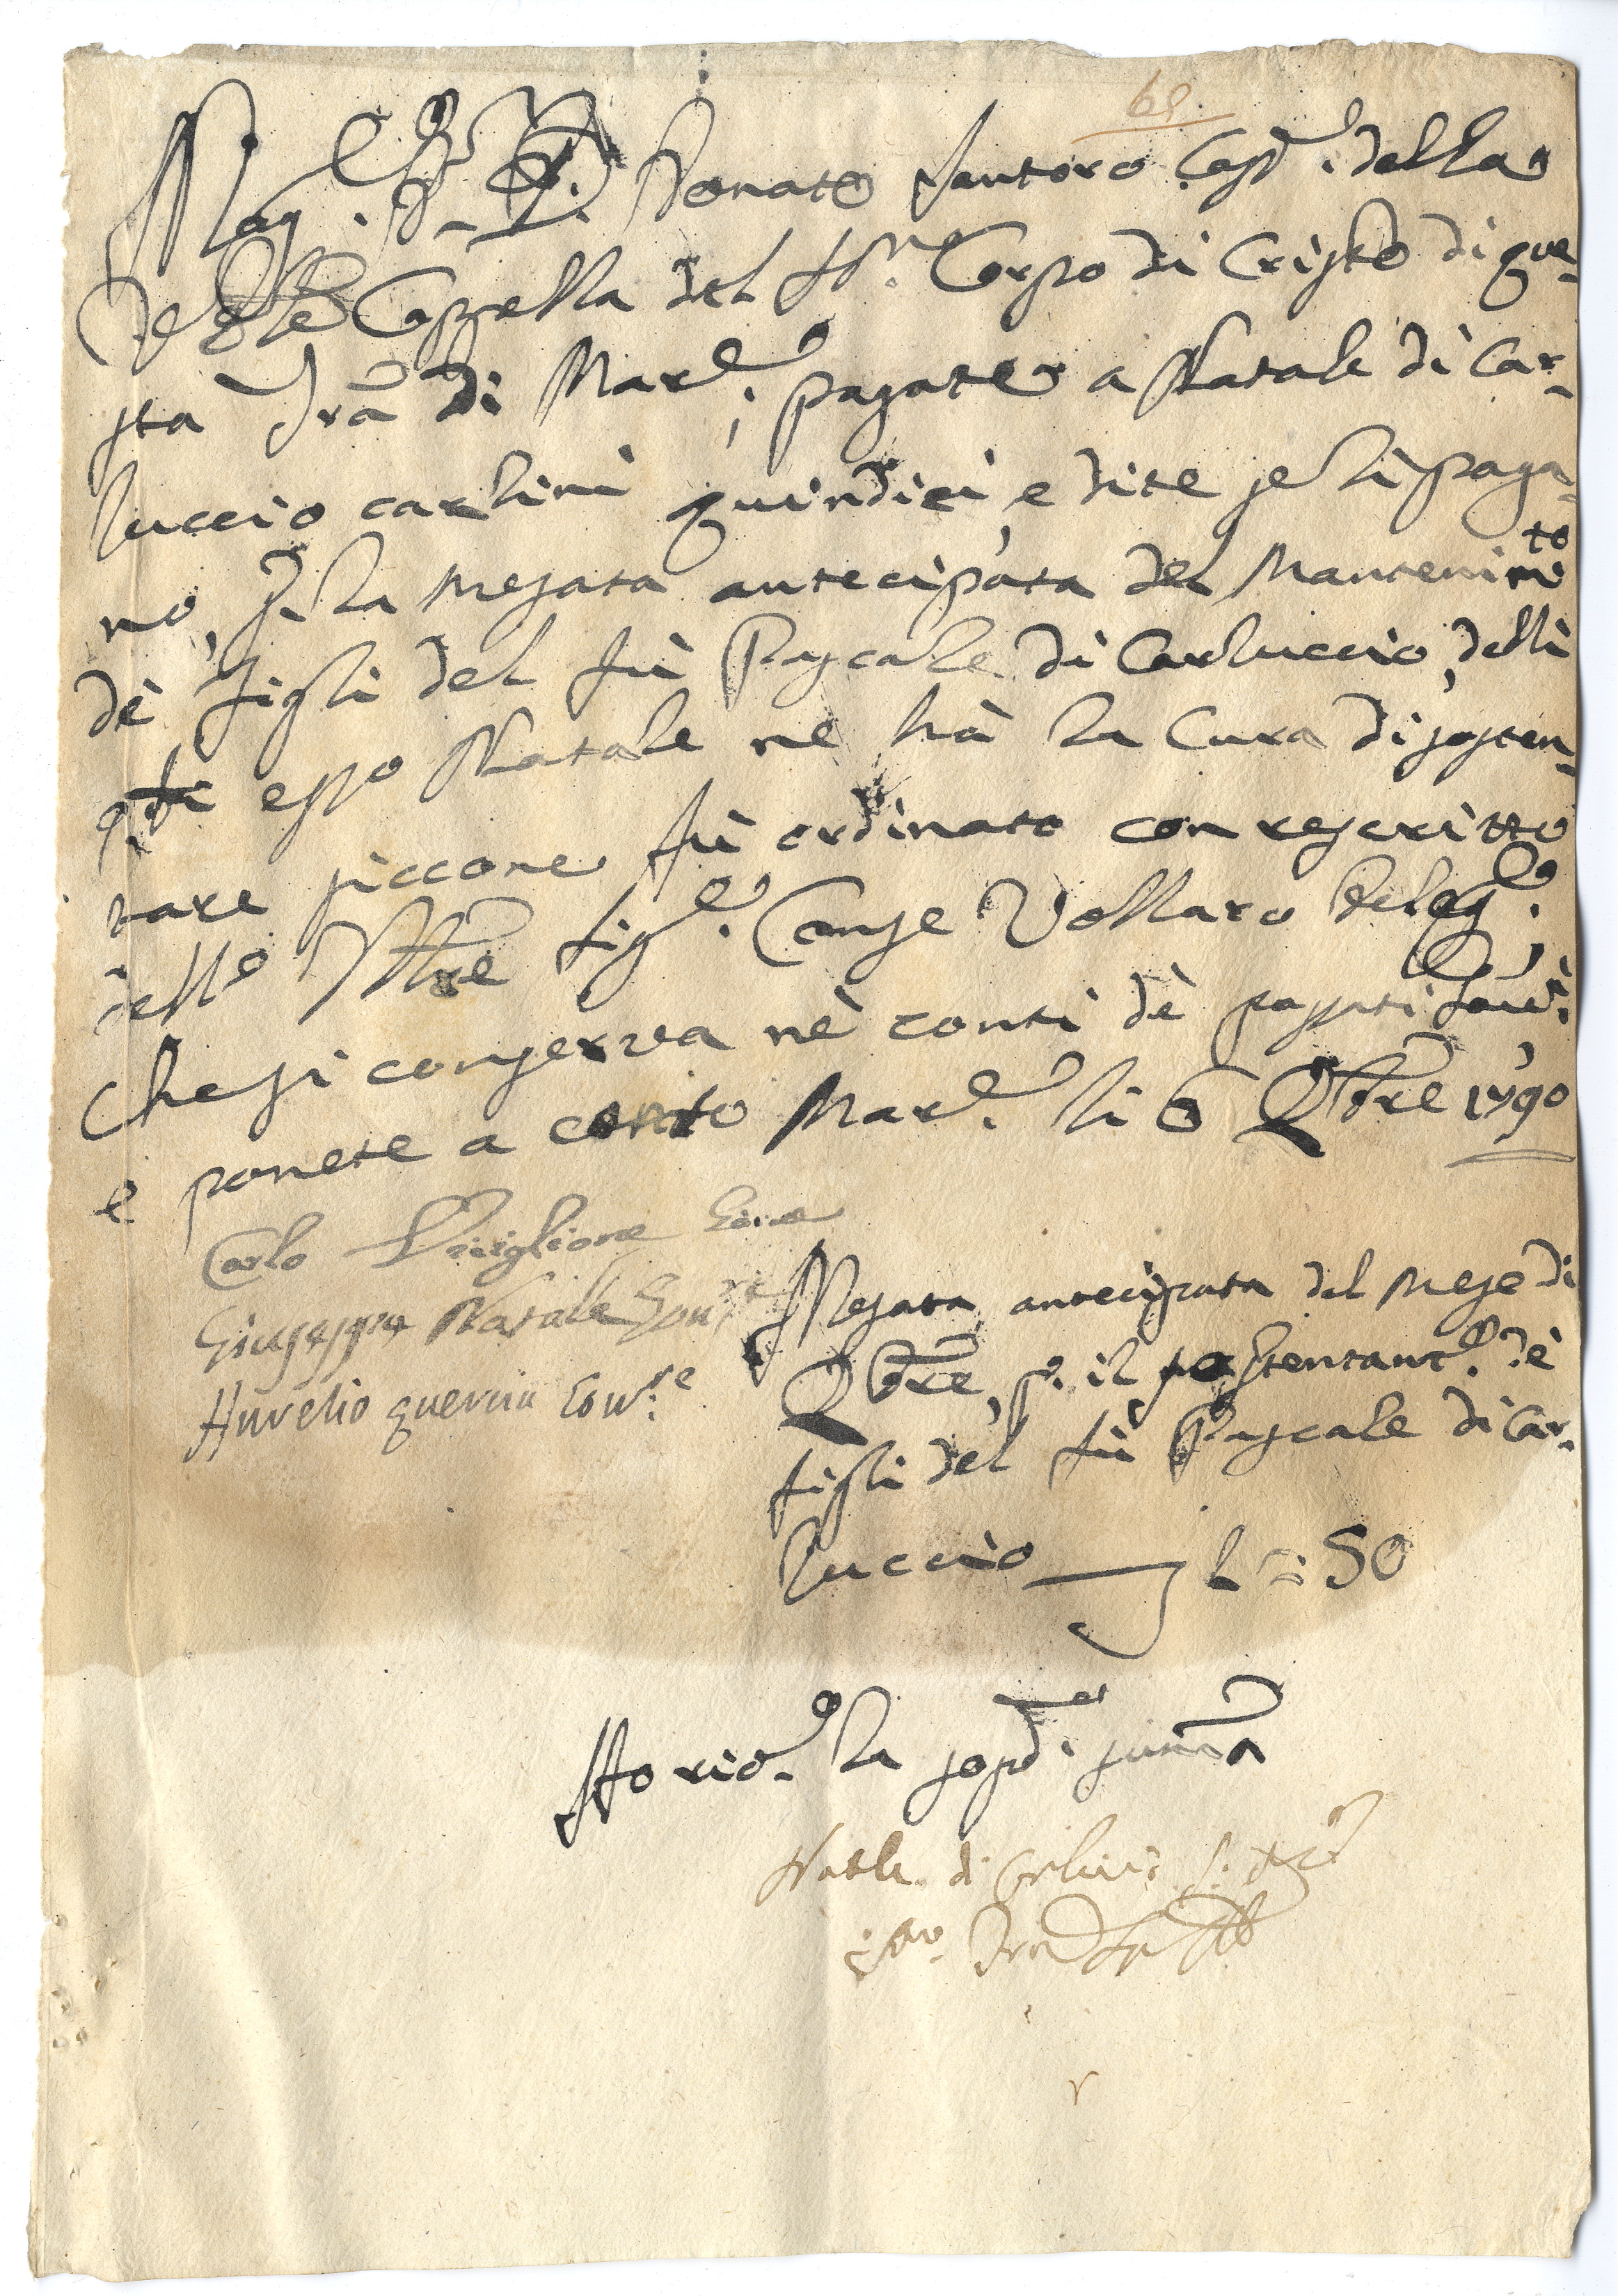 Mag. Donato Santoro Casr. della
Cappella del SS.mo Corpo di Cristo di que-
sta Trã di Mard.e, pagate a Natale di Car-
luccio carlini quindici, e dite se li paga-
no, p. la mesata antecipata del Mantenim.to
dè figli del fù Pascale di Carluccio, delli
q.li esso Natale ne hà la Cura di sosten-
tare siccome fù ordinato con rescritto
dello Ill.re Sig.e Canse Vollaro Deleg.o
che si conserva nè conti dè passati
e ponete a conto Mard.e li 6 Xbre 1790
Carlo Giov.e
Giuseppe Natale Gov.re
Aurelio guercia Gov.re
Mesata antecipata del mese di
Xbre, p. il sostentam.to dè
figli del fù Pascale di Car-
luccio 1 = 50
Ho ric.o la sopd.a summa
Natle di